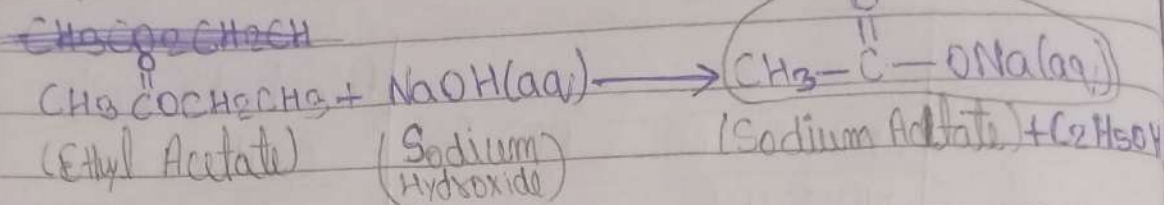 CH3CO2CH2CH
O O
|| ||
CH3COCH2CH3 + NaOH(aq) ⟶ CH3—C—ONa(aq)
(Ethyl Acetate) (Sodium Hydroxide) (Sodium Acetate) + C2H5OH